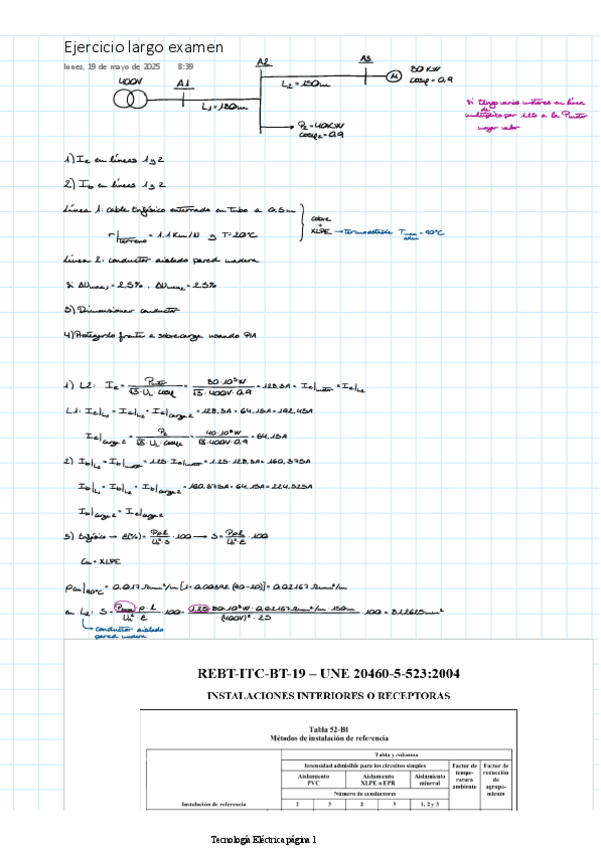 Ejercicio largo examen
lunes, 19 de mayo de 2025 8:39
400V
A1
A2
A3
M
80 KW
cosφ = 0,9
L1 = 180m
L2 = 150m
P2 = 40KW
cosφ2 = 0,9
si tengo varios motores en línea
de
multiplico por 1,25 a la Pmotor
mayor valor
1) Ic en líneas 1 y 2
2) Ib en líneas 1 y 2
Línea 1: cable trifásico enterrado en tubo a 0,5m
r|terreno = 1,1 K·m/W y T = 20ºC
cobre
+
XLPE → termoestable Tmax adm = 90ºC
Línea 2: conductor aislado pared madera
si ΔUmax1 = 2,5%, ΔUmax2 = 2,5%
3) Dimensionar conductor
4) Protegerlo frente a sobrecarga usando PIA
1) L2: Ic = Pmotor / √3·UL·cosφ = 80·10³W / √3·400V·0,9 = 128,3A = Ic|motor = Ic|L2
L1: Ic|L1 = Ic|L2 + Ic|carga2 = 128,3A + 64,15A = 192,45A
Ic|carga2 = P2 / √3·UL·cosφ2 = 40·10³W / √3·400V·0,9 = 64,15A
2) Ib|L2 = Ib|motor = 1,25·Ic|motor = 1,25·128,3A = 160,375A
Ib|L1 = Ib|L2 + Ib|carga2 = 160,375A + 64,15A = 224,525A
Ib|carga2 = Ic|carga2
3) trifásico → ε(%) = P·ρ·L / UL²·S · 100 → S = P·ρ·L / UL²·ε · 100
Cu + XLPE
ρCu|90ºC = 0,017 Ωmm²/m [1 + 0,00392 (90-20)] = 0,02167 Ωmm²/m
en L2: S = Pmotor·ρ·L / UL²·ε · 100 = 1,25·80·10³W·0,02167 Ωmm²/m·150m / (400V)²·2,5 · 100 = 81,2625mm²
conductor aislado
pared madera
REBT-ITC-BT-19 – UNE 20460-5-523:2004
INSTALACIONES INTERIORES O RECEPTORAS
Tabla 52-B1
Métodos de instalación de referencia
Tabla y columna
Intensidad admisible para los circuitos simples
Factor de temperatura ambiente
Factor de reducción de agrupamiento
Aislamiento PVC
Aislamiento XLPE o EPR
Aislamiento mineral
Número de conductores
Instalación de referencia
2
3
2
3
1, 2 y 3
Tecnología Eléctrica página 1